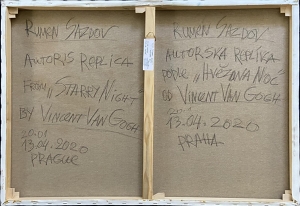 RUMEN SAZDOV
AUTOR'S REPLICA
FROM "STARRY NIGHT
BY VINCENT VAN GOGH
20:01
13.04.2020
PRAGUE
RUMEN SAZDOV
AUTORSKA REPLICA
PODLE "HVĚZDNÁ NOC
OD VINCENT VAN GOGH
13.04.2020
PRAHA